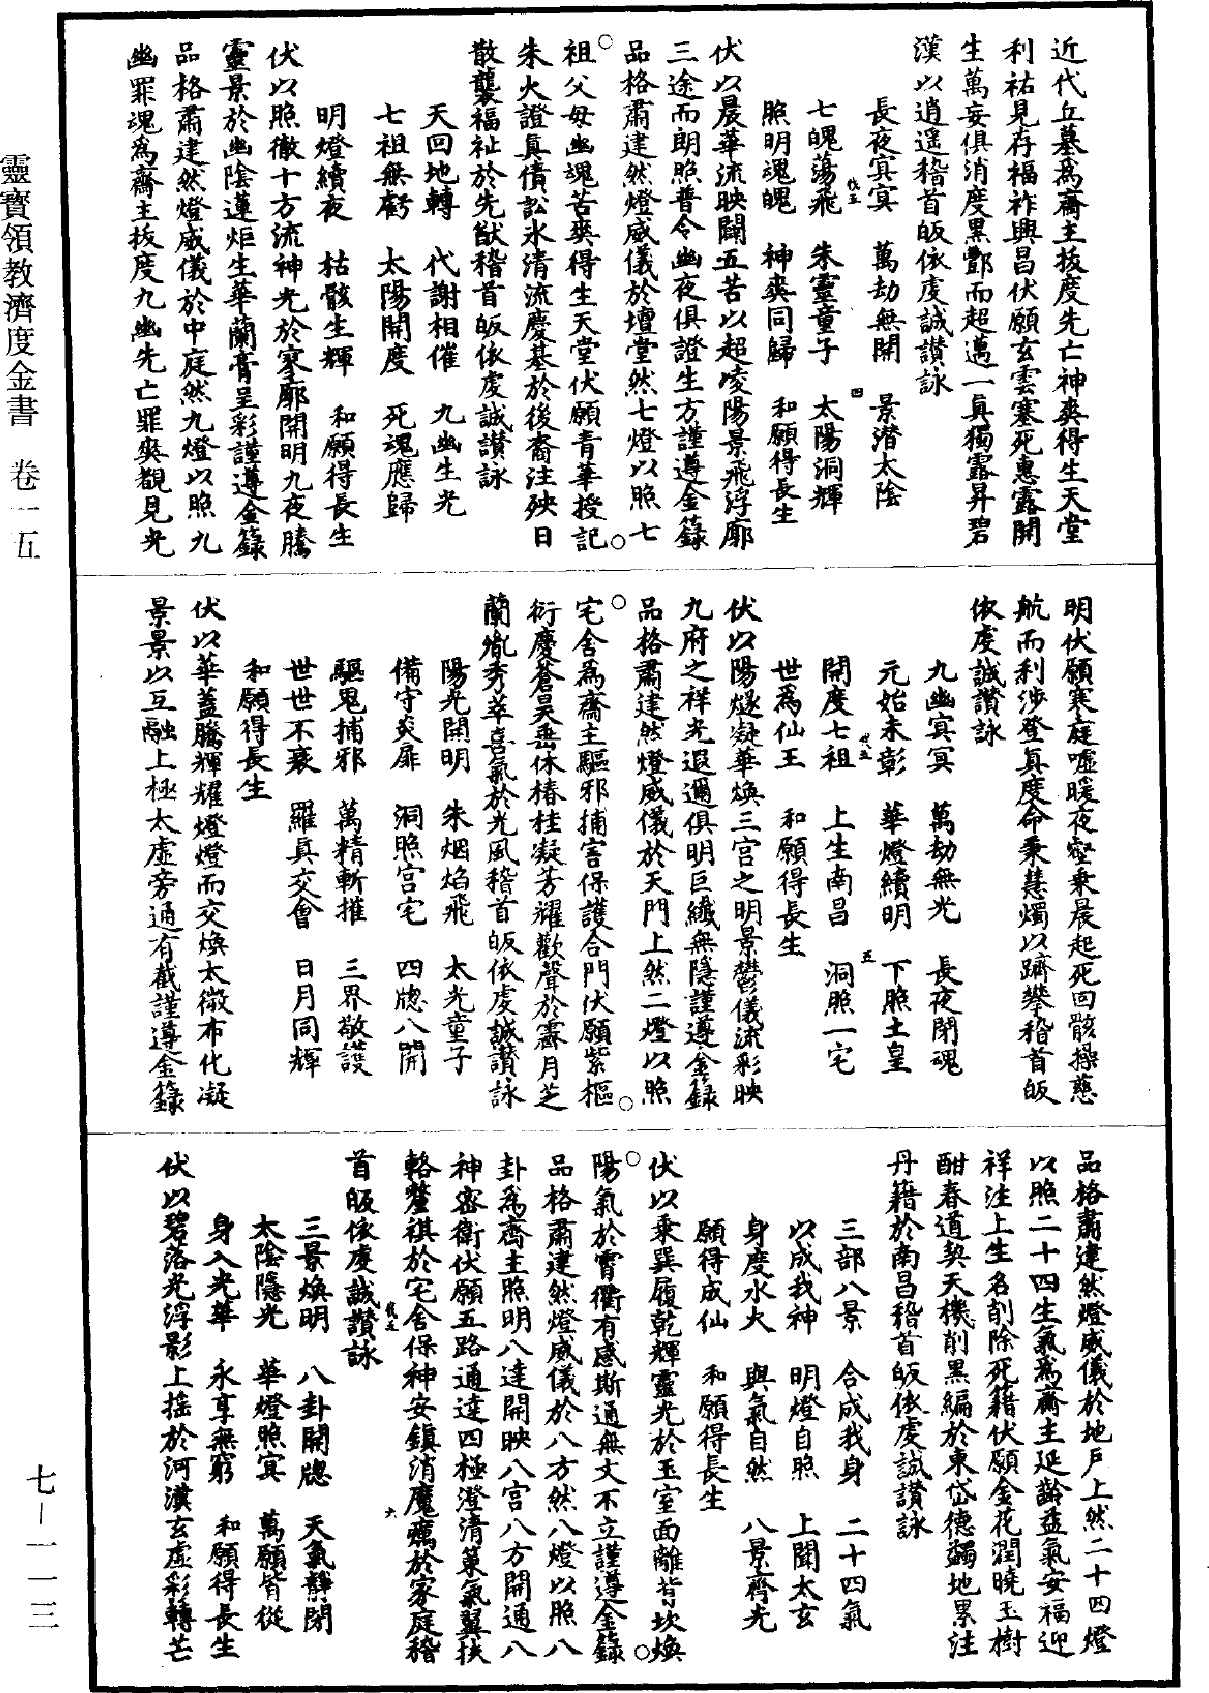 近代丘墓爲齋主拔度先亡神爽得生天堂
利祐見存福祚興昌伏願玄雲塞死惠露開
生萬妄俱消度黑酆而超邁一真獨露昇碧
漢以逍遥稽首皈依虔誠讃詠
長夜冥冥　萬劫無開　景潜太陰
七魄蕩飛　朱靈童子　太陽洞輝
照明魂魄　神爽同歸　和願得長生
伏以晨華流映闢五苦以超凌陽景飛浮廓
三途而朗照普令幽夜俱證生方謹遵金籙
品格肅建然燈威儀於壇堂然七燈以照七
祖父母幽魂苦爽得生天堂伏願青華授記
朱火證真債訟氷清流慶基於後裔注殃日
散襲福祉於先猷稽首皈依虔誠讃詠
天回地轉　代謝相催　九幽生光
七祖無虧　太陽開度　死魂應歸
明燈續夜　枯骸生輝　和願得長生
伏以照徹十方流神光於寥廓開明九夜騰
靈景於幽陰蓮炬生華蘭膏呈彩謹遵金籙
品格肅建然燈威儀於中庭然九燈以照九
幽罪魂爲齋主拔度九幽先亡罪爽覩見光
明伏願寒庭噓暖夜壑乗晨起死回骸操慈
航而利渉登真度命秉慧燭以躋攀稽首皈
依虔誠讃詠
九幽冥冥　萬劫無光　長夜閉魂
元始未彰　華燈續明　下照土皇
開度七祖　上生南昌　洞照一宅
世爲仙王　和願得長生
伏以陽燧凝華煥三宫之明景鬱儀流彩映
九府之祥光遐邇俱明巨纖無隱謹遵金籙
品格肅建然燈威儀於天門上然二燈以照
宅舍爲齋主驅邪捕害保護合門伏願紫樞
衍慶蒼昊垂休椿桂凝芳耀歡聲於霽月芝
蘭毓秀萃喜氣於光風稽首皈依虔誠讃詠
陽光開明　朱烟焰飛　太光童子
備守炎扉　洞照宫宅　四牕八開
驅鬼捕邪　萬精斬摧　三界敬護
世世不衰　羅真交會　日月同輝
和願得長生
伏以華蓋騰輝耀燈燈而交煥太微布化凝
景景以互融上極太虚旁通有截謹遵金籙
品格肅建然燈威儀於地戶上然二十四燈
以照二十四生氣爲齋主延齡益氣安福迎
祥注上生名削除死籍伏願金花潤曉玉樹
酣春道契天機削黑編於東岱德蠲地累注
丹籍於南昌稽首皈依虔誠讃詠
三部八景　合成我身　二十四氣
以成我神　明燈自照　上聞太玄
身度水火　與氣自然　八景齊光
願得成仙　和願得長生
伏以乗巽履乾輝靈光於玉室面離背坎煥
陽氣於霄衢有感斯通無文不立謹遵金籙
品格肅建然燈威儀於八方然八燈以照八
卦爲齋主照明八達開映八宫八方開通八
神密衛伏願五路通達四極澄清藁氣翼扶
輅釐祺於宅舍保神安鎮消魔癘於家庭稽
首皈依虔誠讃詠
三景煥明　八卦開牕　天氣辭閉
太陰隱光　華燈照冥　萬願皆從
身入光華　永享無窮　和願得長生
伏以碧落光浮影上揺於河漢玄虚彩轉芒
靈寶領教濟度金書　卷一五
七－一一三